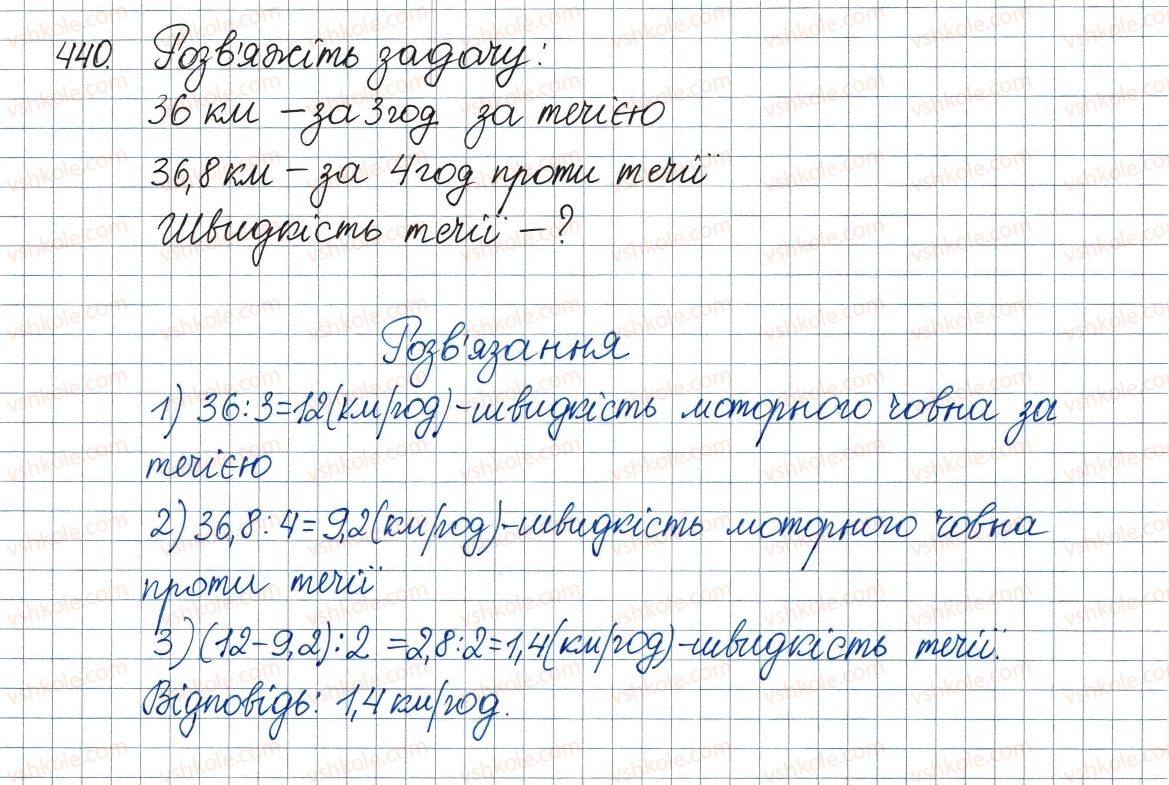 440. Розв'яжіть задачу:
36 км – за 3 год за течією
36,8 км – за 4 год проти течії
Швидкість течії – ?
Розв'язання
1) 36:3=12(км/год)-швидкість моторного човна за
течією
2) 36,8:4=9,2(км/год)-швидкість моторного човна
проти течії
3) (12-9,2):2 =2,8:2=1,4(км/год)-швидкість течії.
Відповідь: 1,4 км/год.
vshkole.com